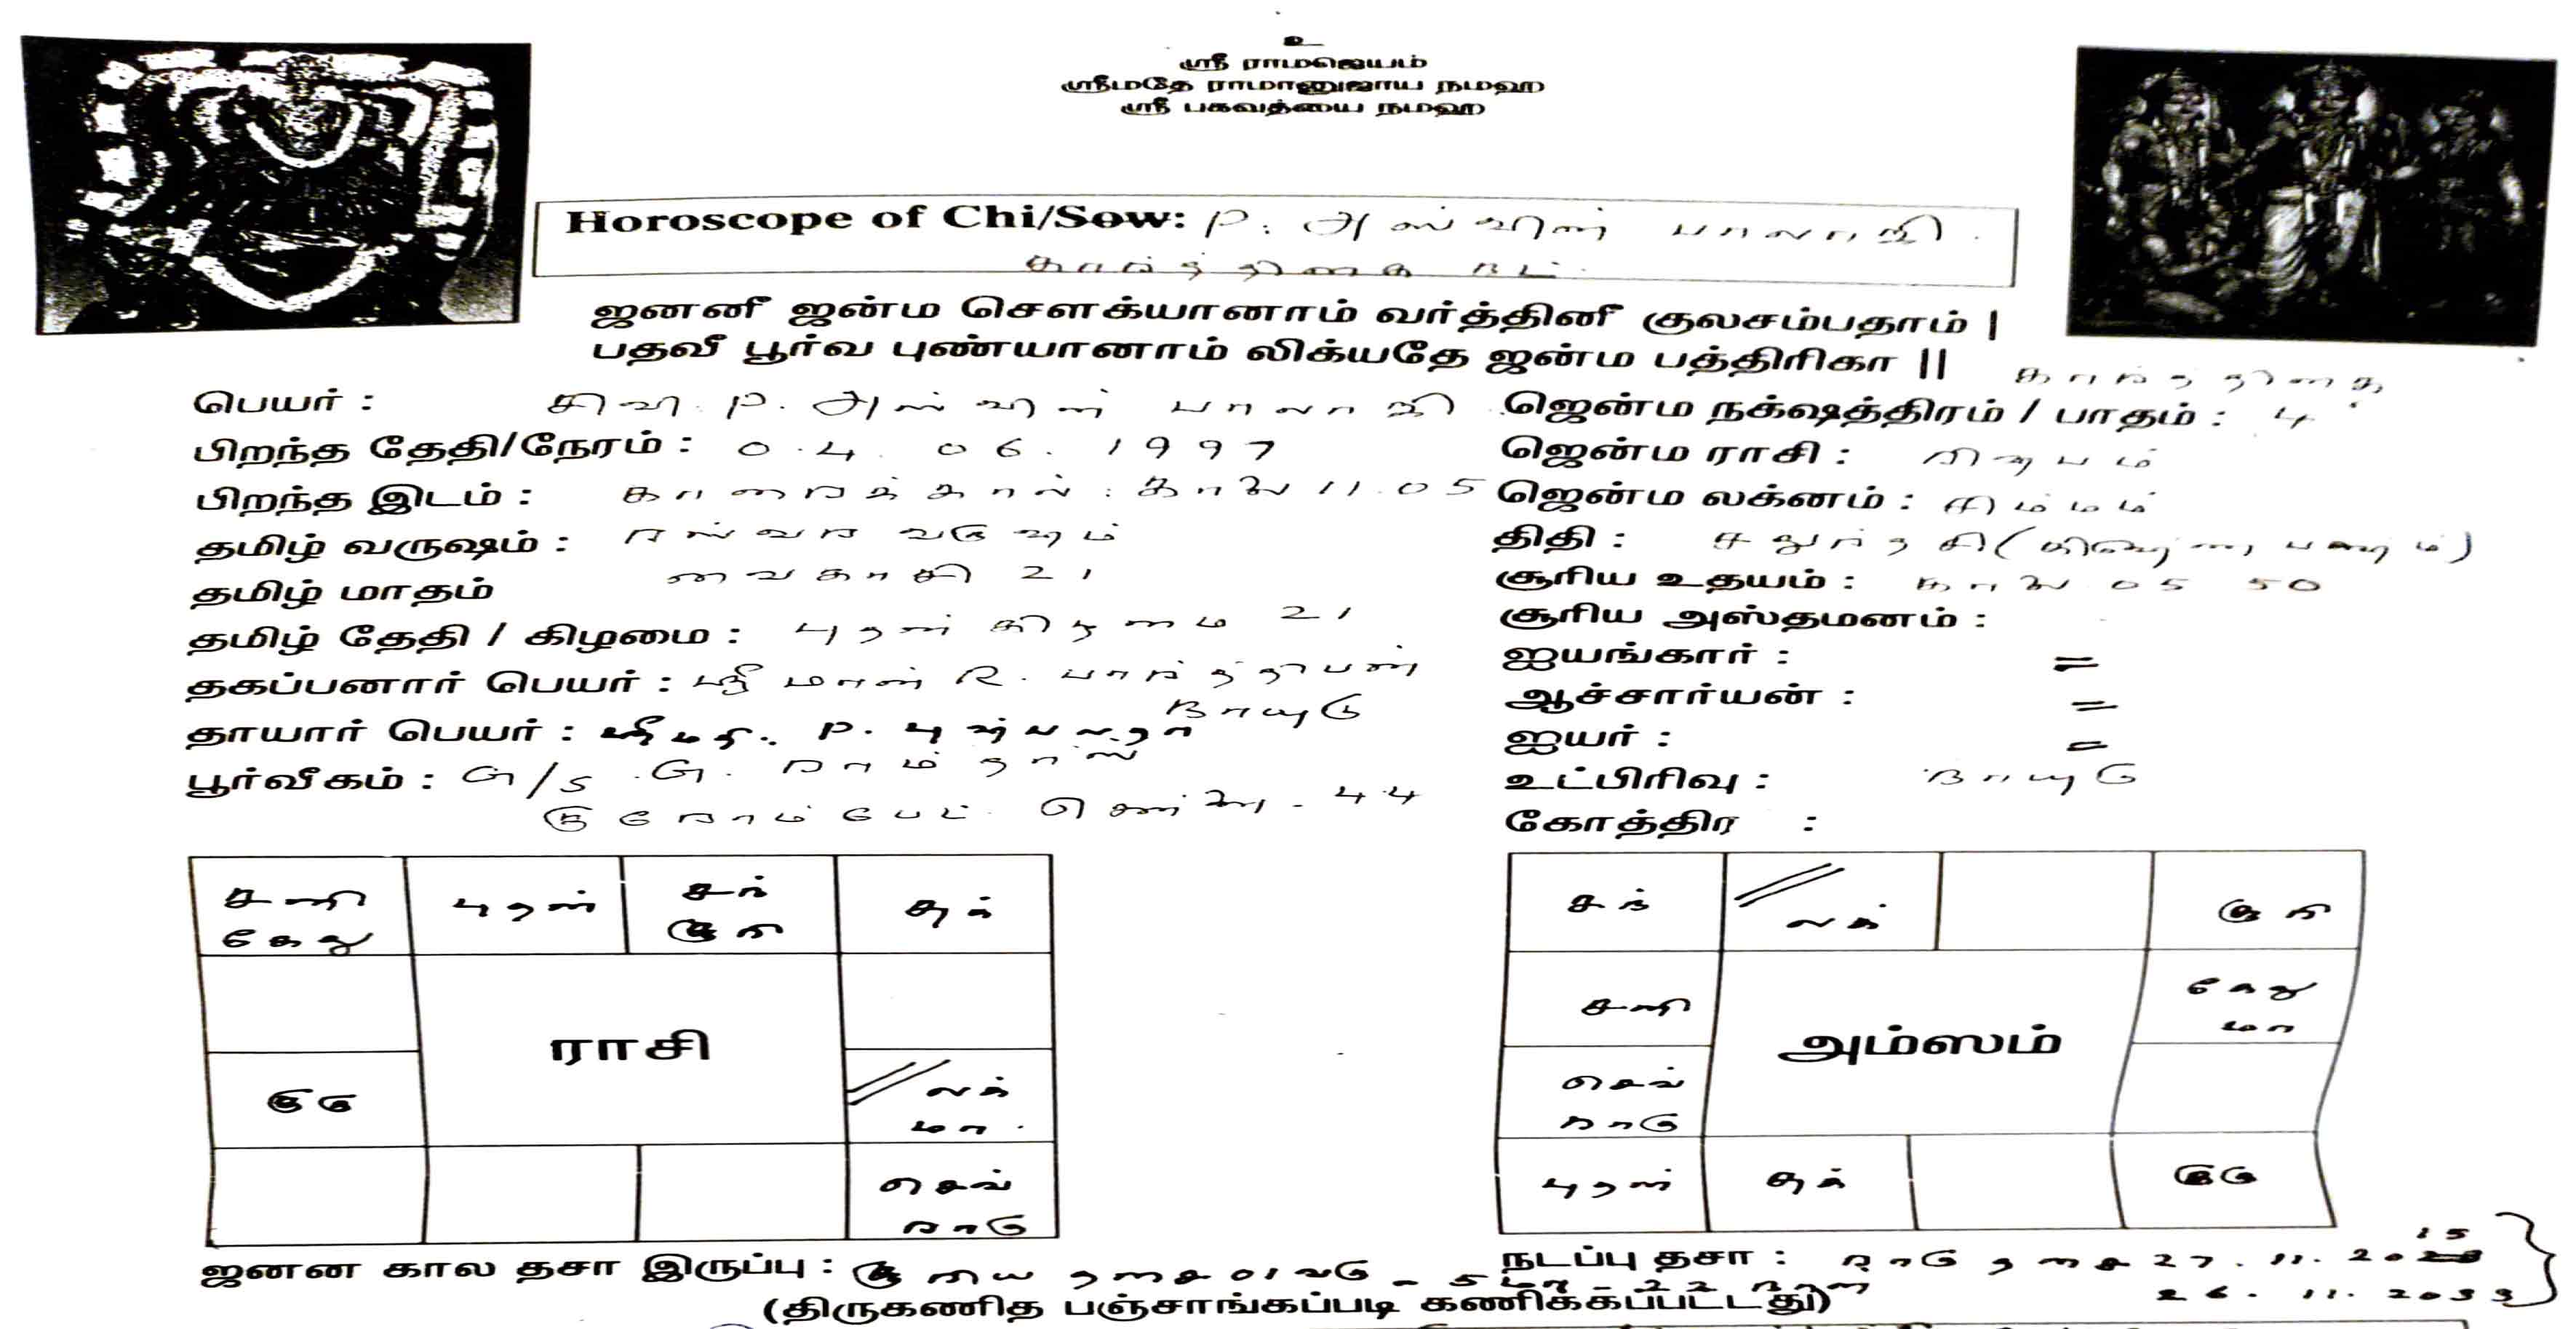 உ
ஸ்ரீ ராமஜெயம்
ஸ்ரீமதே ராமானுஜாய நமஹ
ஸ்ரீ பகவத்யை நமஹ
Horoscope of Chi/Sow: P. அஸ்வின் பாலாஜி.
கார்த்திகை நட்.
ஜனனீ ஜன்ம சௌக்யானாம் வர்த்தினீ குலசம்பதாம் |
பதவீ பூர்வ புண்யானாம் லிக்யதே ஜன்ம பத்திரிகா ||
பெயர் : சிவி. P. அஸ்வின் பாலாஜி.
பிறந்த தேதி/நேரம் : 04. 06. 1997
பிறந்த இடம் : காரைக்கால் : காலை 11.05
தமிழ் வருஷம் : ஈஸ்வர வருஷம்
தமிழ் மாதம் வைகாசி 21
தமிழ் தேதி / கிழமை : புதன் கிழமை 21
தகப்பனார் பெயர் : ஸ்ரீமான் R. பார்த்திபன்
நாயுடு
தாயார் பெயர் : ஸ்ரீமதி. P. புஷ்பலதா
பூர்வீகம் : G/S. G. ராம் தாஸ்
குரோம்பேட். சென்னை - 44
கார்த்திகை
ஜென்ம நக்ஷத்திரம் / பாதம் : 4
ஜென்ம ராசி : ரிஷபம்
ஜென்ம லக்னம் : சிம்மம்
திதி : சதுர்தசி (கிருஷ்ண பக்ஷம்)
சூரிய உதயம் : காலை 05 50
சூரிய அஸ்தமனம் :
ஐயங்கார் : =
ஆச்சார்யன் : =
ஐயர் : =
உட்பிரிவு : நாயுடு
கோத்திர :
சனி புதன் சந் சுக்
கேது சூரி
ராசி
குரு லக்
மா
செவ்
ராகு
சந் லக் சூரி
சனி கேது
மா
அம்ஸம்
செவ்
ராகு
புதன் சுக் குரு
ஜனன கால தசா இருப்பு : சூரிய தசை 01 வரு - 5 மா - 22 நாள்
(திருகணித பஞ்சாங்கப்படி கணிக்கப்பட்டது)
நடப்பு தசா : ராகு தசை 27. 11. 2015
26. 11. 2033